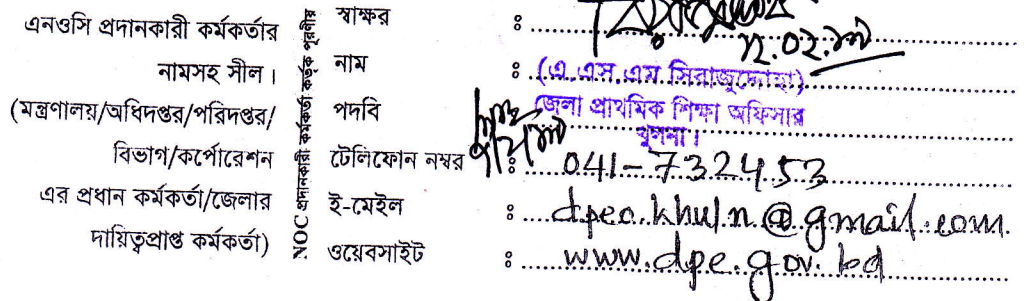 এনওসি প্রদানকারী কর্মকর্তার
নামসহ সীল।
(মন্ত্রণালয়/অধিদপ্তর/পরিদপ্তর/
বিভাগ/কর্পোরেশন
এর প্রধান কর্মকর্তা/জেলার
দায়িত্বপ্রাপ্ত কর্মকর্তা)
NOC প্রদানকারী কর্মকর্তা কর্তৃক পূরণীয়
স্বাক্ষর :
নাম : (এ.এস.এম সিরাজুদ্দোহা)
পদবি : জেলা প্রাথমিক শিক্ষা অফিসার
খুলনা।
টেলিফোন নম্বর : 041-732453
ই-মেইল : dpeo.khuln@gmail.com.
ওয়েবসাইট : www.dpe.gov.bd